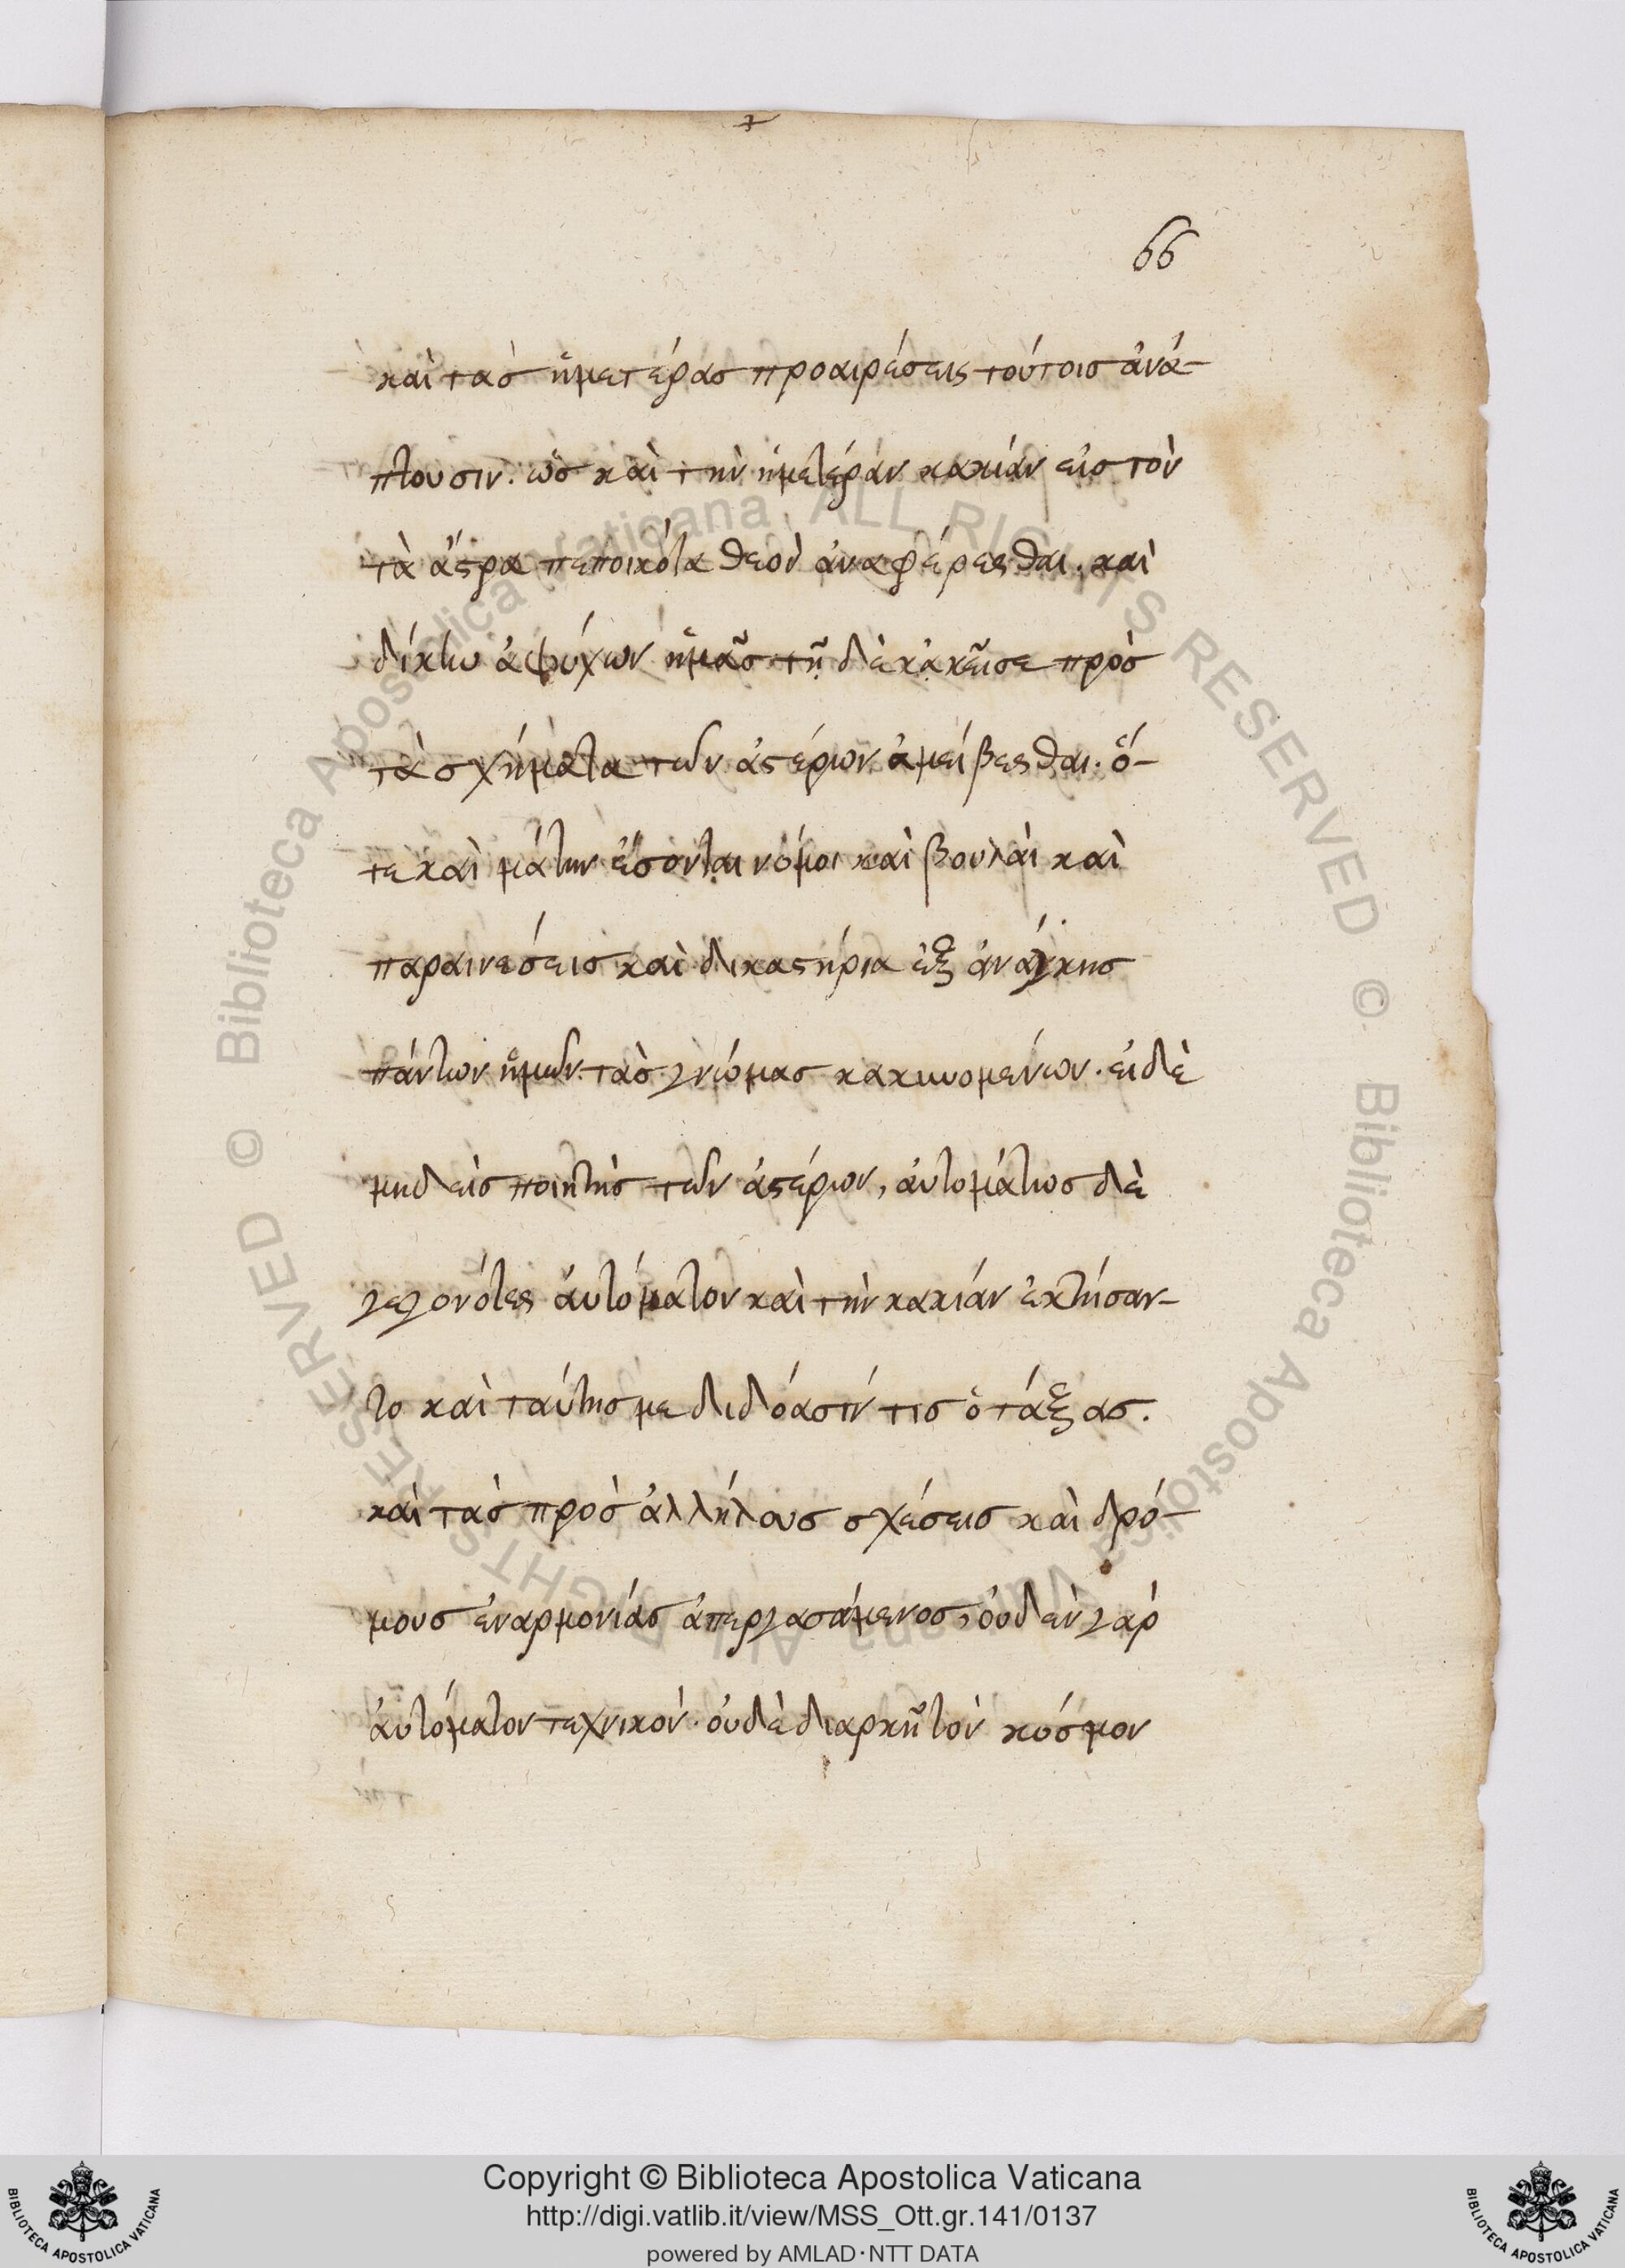 66
καὶ τὰσ ἡμετέρασ προαιρέσεις τούτοισ ἀνά-
πτουσιν. ὡσ καὶ τὴν ἡμετέραν κακίαν εἰσ τὸν
τὰ ἄστρα πεποικότα θεὸν ἀναφέρεσθαι. καὶ
δίκην ἀψύχων ἡμᾶσ τῇ δὲ κᾀκεῖσε πρὸσ
τὰ σχήματα τῶν ἀστέρων ἀμείβεσθαι. ὅ-
τε καὶ μάτην ἔσονται νόμοι καὶ βουλαὶ καὶ
παραινέσεισ καὶ δικαστήρια ἐξ ἀνάγκησ
πάντων ἡμῶν τὰσ γνώμασ κακυνομένων. εἰ δὲ
μηδεὶσ ποιητὴσ τῶν ἀστέρων, αὐτομάτωσ δὲ
γεγονότες αὐτόματον καὶ τὴν κακίαν ἐκτήσαν-
το καὶ ταύτησ μεδιδόασίν τισ ὁ τάξασ.
καὶ τὰσ πρὸσ ἀλλήλουσ σχέσεισ καὶ δρό-
μουσ ἐναρμονίασ ἀπεργασάμενοσ, οὐδὲν γὰρ
αὐτόματον τεχνικὸν. οὐδὲ διαρκῆ τὸν κόσμον
Copyright © Biblioteca Apostolica Vaticana
http://digi.vatlib.it/view/MSS_Ott.gr.141/0137
powered by AMLAD·NTT DATA
BIBLIOTECA APOSTOLICA VATICANA
BIBLIOTECA APOSTOLICA VATICANA
© Biblioteca Apostolica Vaticana ALL RIGHTS RESERVED
© Biblioteca Apostolica Vaticana ALL RIGHTS RESERVED